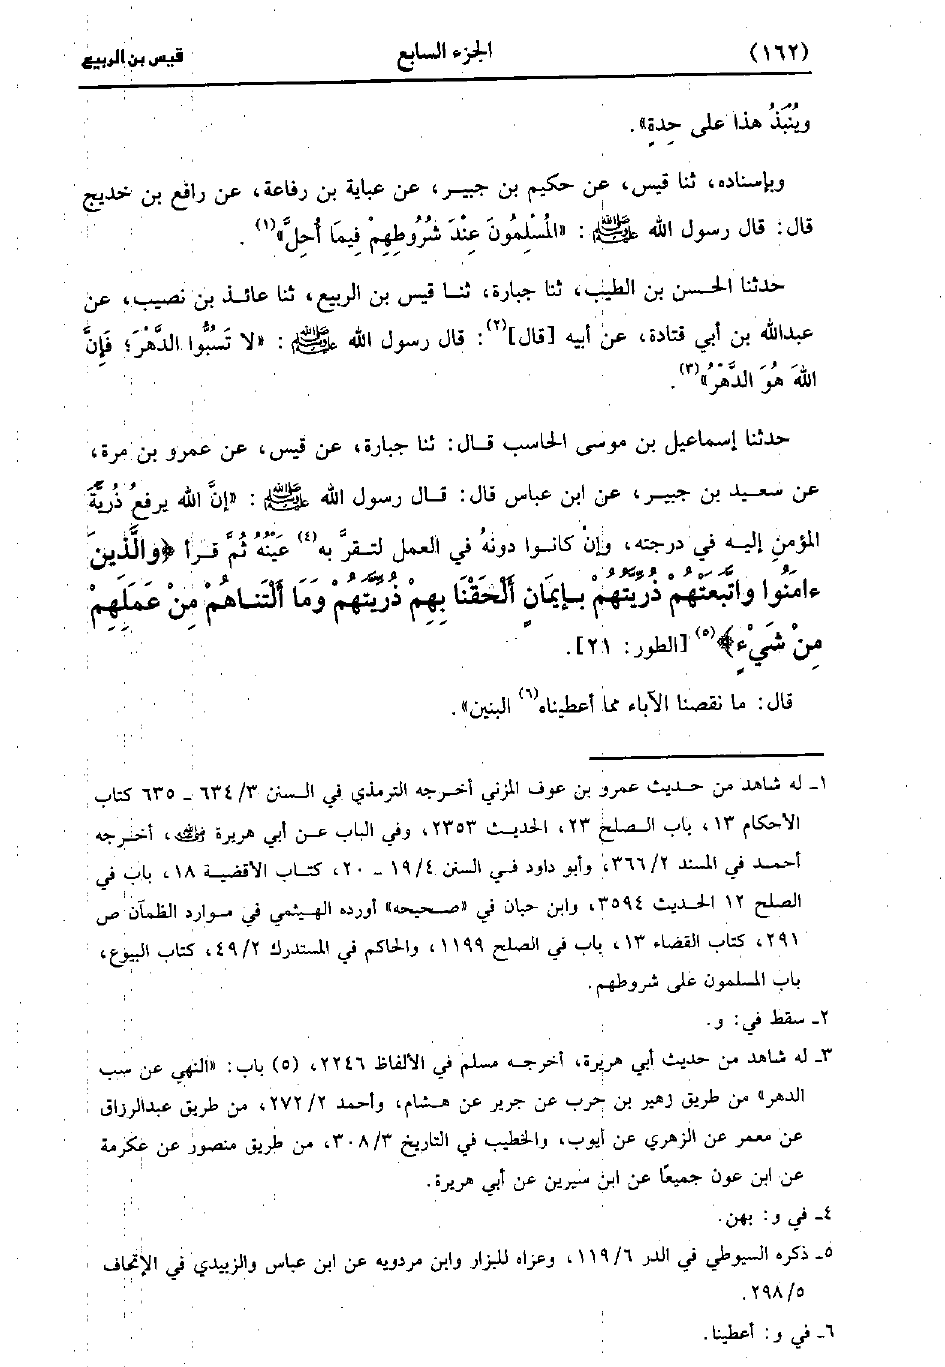 (١٦٢) الجزء السابع قيس بن الربيع
ويُنْبَذُ هذا على حِدةٍ».
وبإسناده، ثنا قيس، عن حكيم بن جبير، عن عباية بن رفاعة، عن رافع بن خديج
قال: قال رسول الله ﷺ: «المُسْلِمُونَ عِنْدَ شُرُوطِهِمْ فِيمَا أُحِلَّ»(١).
حدثنا الحسن بن الطيب، ثنا جبارة، ثنا قيس بن الربيع، ثنا عائذ بن نصيب، عن
عبدالله بن أبي قتادة، عن أبيه [قال](٢): قال رسول الله ﷺ: «لا تَسُبُّوا الدَّهْرَ؛ فَإِنَّ
اللهَ هُوَ الدَّهْرُ»(٣).
حدثنا إسماعيل بن موسى الحاسب قال: ثنا جبارة، عن قيس، عن عمرو بن مرة،
عن سعيد بن جبير، عن ابن عباس قال: قال رسول الله ﷺ: «إنَّ الله يرفعُ ذُريَّةَ
المؤمنِ إليه في درجته، وإنْ كانوا دونهُ في العمل لتقرَّ به(٤) عَيْنُهُ ثُمَّ قرأ ﴿والَّذِينَ
ءامَنُوا واتَّبعَتْهُمْ ذُرِّيَّتُهُمْ بإيمَانٍ أَلْحَقْنَا بِهِمْ ذُرِّيَّتَهُمْ وَمَا أَلَتْنَاهُمْ مِنْ عَمَلِهِمْ
مِنْ شَيْءٍ﴾(٥) [الطور: ٢١].
قال: ما نقصنا الآباء مما أعطيناه(٦) البنين».
١ـ له شاهد من حديث عمرو بن عوف المزني أخرجه الترمذي في السنن ٣/ ٦٣٤ ـ ٦٣٥ كتاب
الأحكام ١٣، باب الصلح ٢٣، الحديث ٢٣٥٣، وفي الباب عن أبي هريرة رضي الله عنه، أخرجه
أحمد في المسند ٢/ ٣٦٦، وأبو داود في السنن ٤/ ١٩ ـ ٢٠، كتاب الأقضية ١٨، باب في
الصلح ١٢ الحديث ٣٥٩٤، وابن حبان في «صحيحه» أورده الهيثمي في موارد الظمآن ص
٢٩١، كتاب القضاء ١٣، باب في الصلح ١١٩٩، والحاكم في المستدرك ٢/ ٤٩، كتاب البيوع،
باب المسلمون على شروطهم.
٢ـ سقط في: و.
٣ـ له شاهد من حديث أبي هريرة، أخرجه مسلم في الألفاظ ٢٢٤٦، (٥) باب: «النهي عن سب
الدهر» من طريق زهير بن حرب عن جرير عن هشام، وأحمد ٢/ ٢٧٢، من طريق عبدالرزاق
عن معمر عن الزهري عن أيوب، والخطيب في التاريخ ٣/ ٣٠٨، من طريق منصور عن عكرمة
عن ابن عون جميعًا عن ابن سيرين عن أبي هريرة.
٤ـ في و: بهن.
٥ـ ذكره السيوطي في الدر ٦/ ١١٩، وعزاه للبزار وابن مردويه عن ابن عباس والزبيدي في الإتحاف
٥/ ٢٩٨.
٦ـ في و: أعطينا.